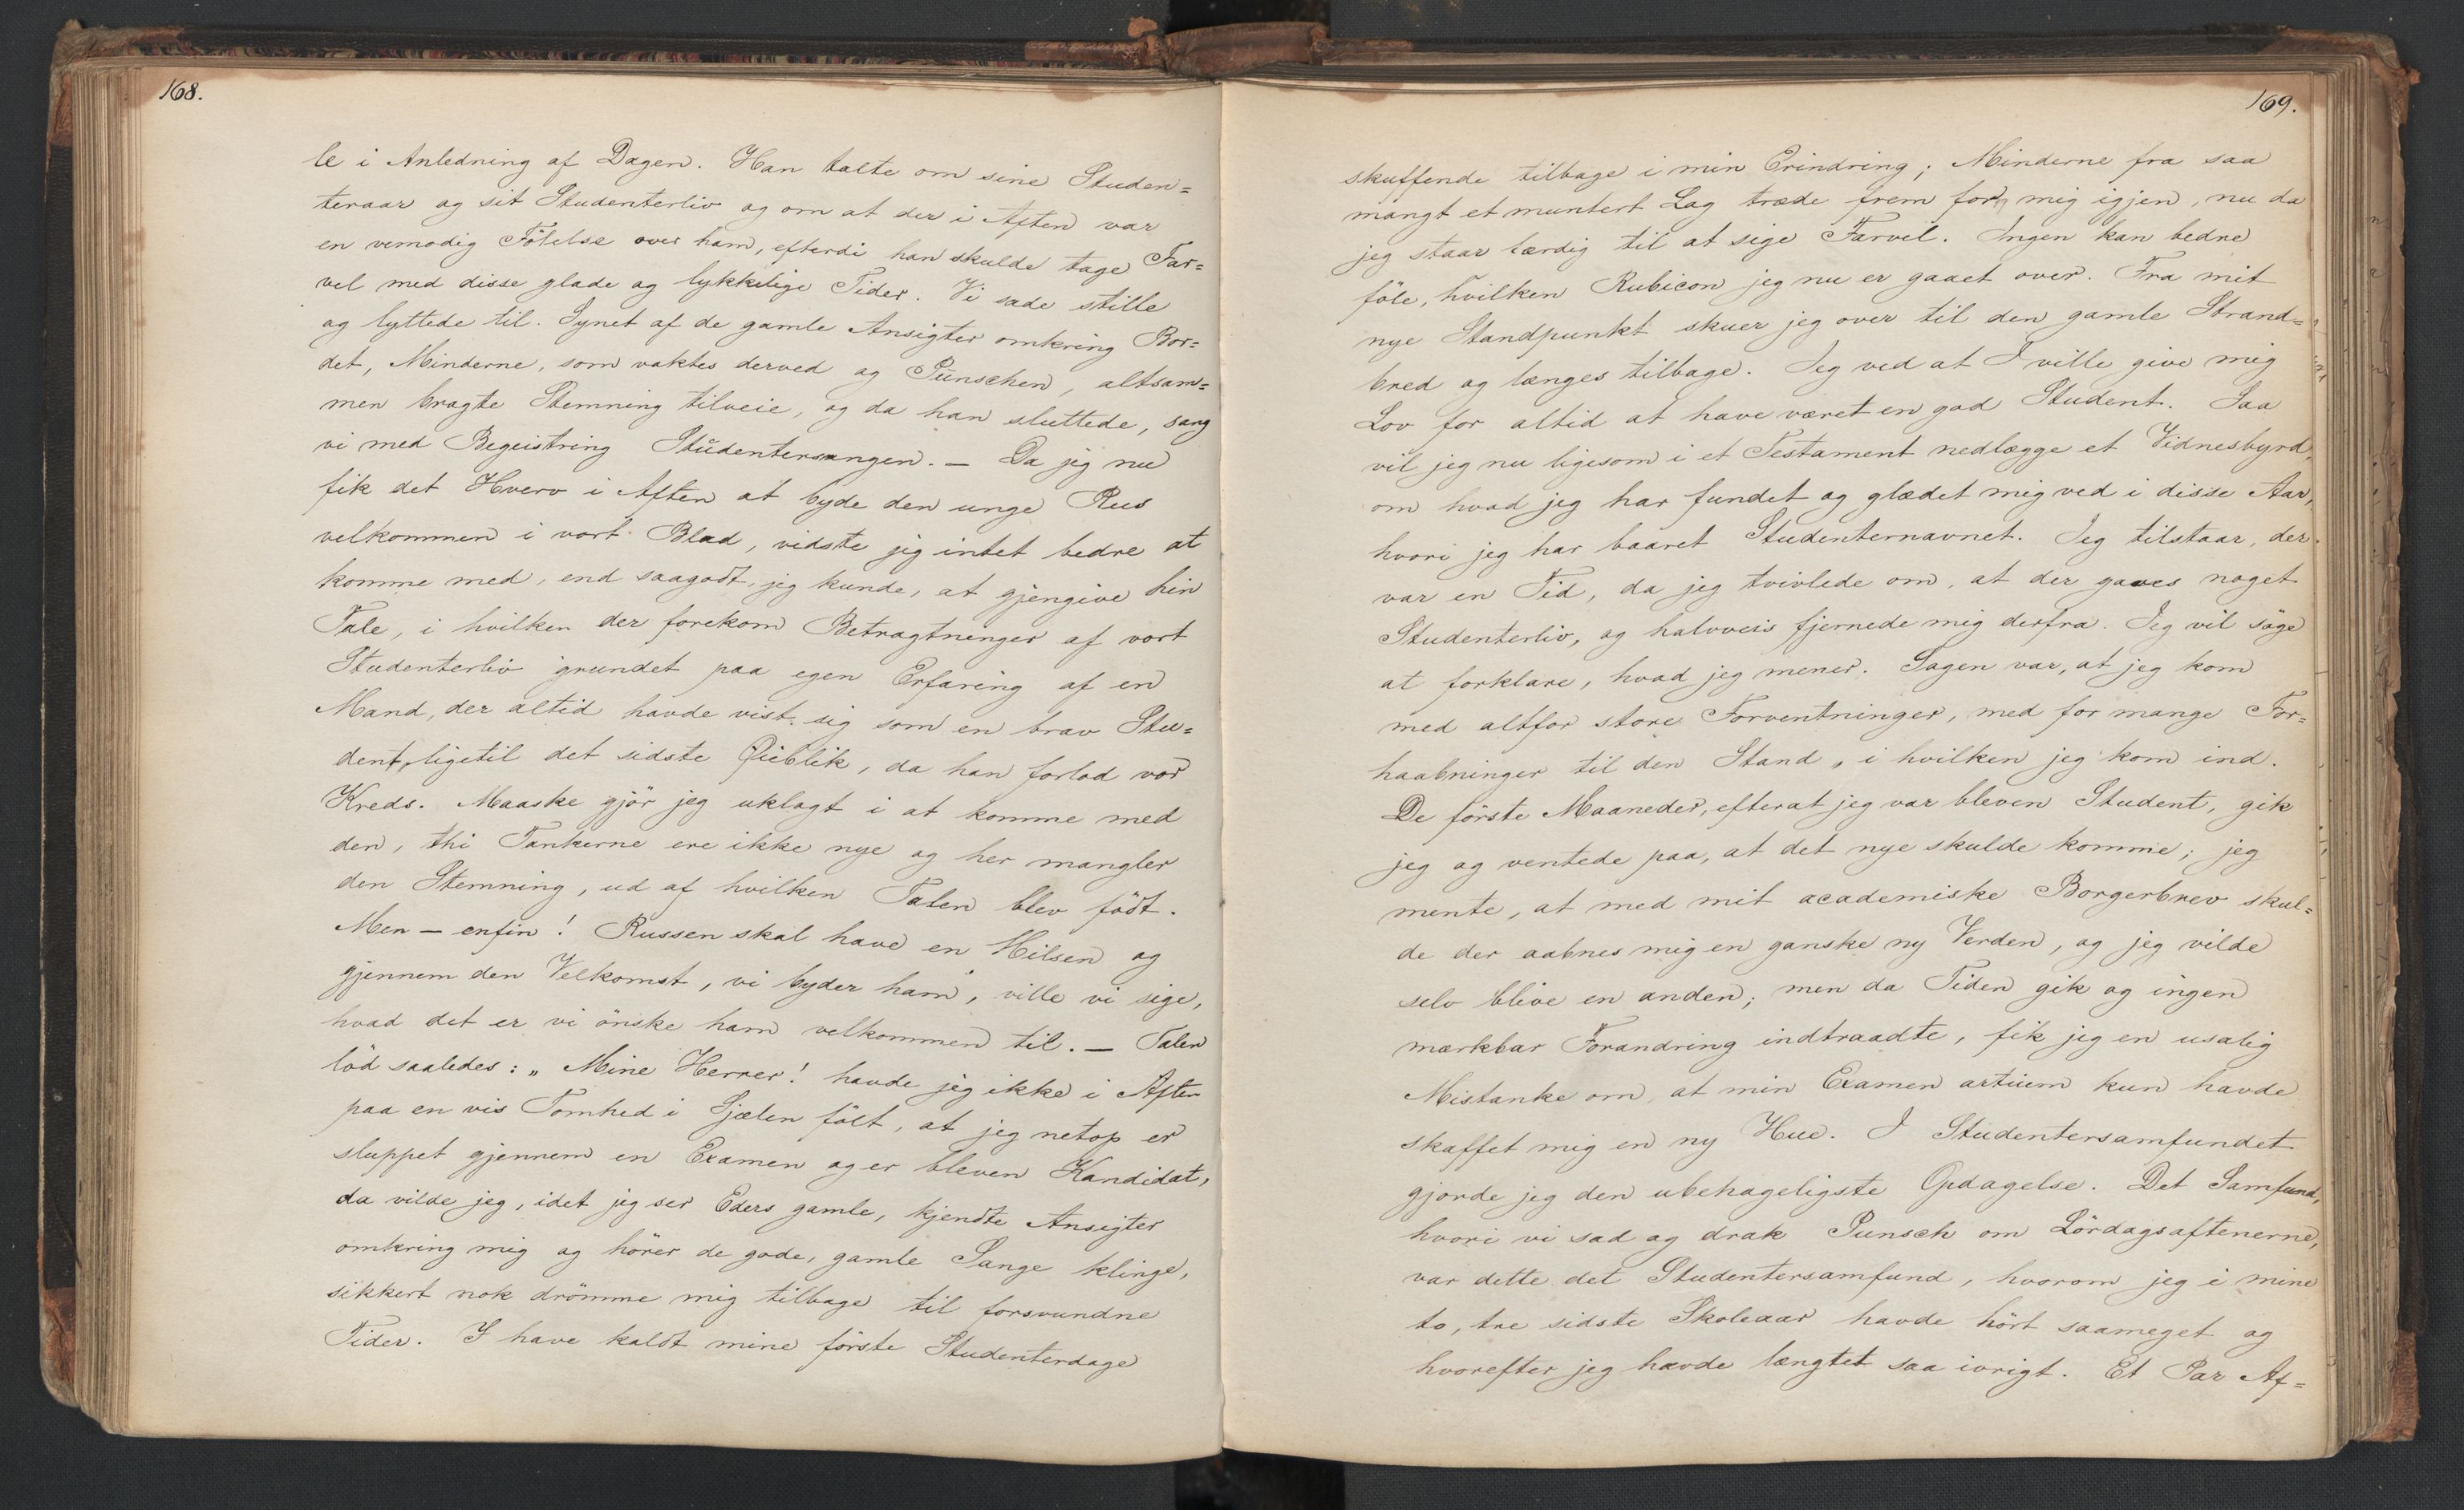 168.
le i Anledning af Dagen. Han talte om sine Studen=
teraar og sit Studenterliv og om at der i Aften var
en vemodig Følelse over ham, efterdi han skulde tage Far=
vel med disse glade og lykkelige Tider. Vi sade stille
og lyttede til. Synet af de gamle Ansigter omkring Bor=
det, Minderne, som vaktes derved og Punschen, altsam=
men bragte Stemning tilveie, og da han sluttede, sang
vi med Begeistring Studentersangen. — Da jeg nu
fik det Hverv i Aften at byde den unge Rus
velkommen i vort Blad, vidste jeg intet bedre at
komme med, end saagodt, jeg kunde, at gjengive hin
Tale, i hvilken der forekom Betragtninger af vort
Studenterliv grundet paa egen Erfaring af en
Mand, der altid havde vist sig som en brav Stu=
dent, ligetil det sidste Øieblik, da han forlod vor
Kreds. Maaske gjör jeg uklogt i at komme med
den, thi Tankerne ere ikke nye og her mangler
den Stemning, ud af hvilken Talen blev födt.
Men — enfin! Russen skal have en Hilsen og
gjennem den Velkomst, vi byder ham, ville vi sige,
hvad det er vi önske ham velkommen til. — Talen
löd saaledes: „Mine Herrer! havde jeg ikke i Aften
paa en vis Tomhed i Sjælen fölt, at jeg netop er
sluppet gjennem en Examen og er bleven Kandidat,
da vilde jeg, idet jeg ser Eders gamle, kjendte Ansigter
omkring mig og hörer de gode, gamle Sange klinge,
sikkert nok drömme mig tilbage til forsvundne
Tider. I have kaldt mine förste Studenterdage
169.
skuffende tilbage i min Erindring; Minderne fra saa
mangt et muntert Lag træde frem for mig igjen, nu da
jeg staar færdig til at sige Farvel. Ingen kan bedre
föle, hvilken Rubicon jeg nu er gaaet over. Fra mit
nye Standpunkt skuer jeg over til den gamle Strand=
bred og længes tilbage. Jeg ved at I ville give mig
Lov for altid at have været en god Student. Saa
vil jeg nu ligesom i et Testament nedlægge et Vidnesbyrd
om hvad jeg har fundet og glædet mig ved i disse Aar,
hvori jeg har baaret Studenternavnet. Jeg tilstaar, der
var en Tid, da jeg tvivlede om, at der gaves noget
Studenterliv, og halvveis fjernede mig derfra. Jeg vil söge
at forklare, hvad jeg mener. Sagen var, at jeg kom
med altfor store Forventninger, med for mange For=
haabninger til den Stand, i hvilken jeg kom ind.
De förste Maaneder, efterat jeg var bleven Student, gik
jeg og ventede paa, at det nye skulde komme; jeg
mente, at med mit academiske Borgerbrev skul=
de der aabnes mig en ganske ny Verden, og jeg vilde
selv blive en anden; men da Tiden gik og ingen
mærkbar Forandring indtraadte, fik jeg en usalig
Mistanke om, at min Examen artium kun havde
skaffet mig en ny Hue. I Studentersamfundet
gjorde jeg den ubehageligste Opdagelse. Det Samfund,
hvori vi sad og drak Punsch om Lördagsaftenerne,
var dette det Studentersamfund, hvorom jeg i mine
to, tre sidste Skoleaar havde hört saameget og
hvorefter jeg havde længtet saa ivrigt. Et Par Af=